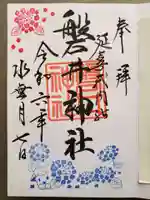 奉拝
延喜式内社
磐井神社
令和六年
水無月七日